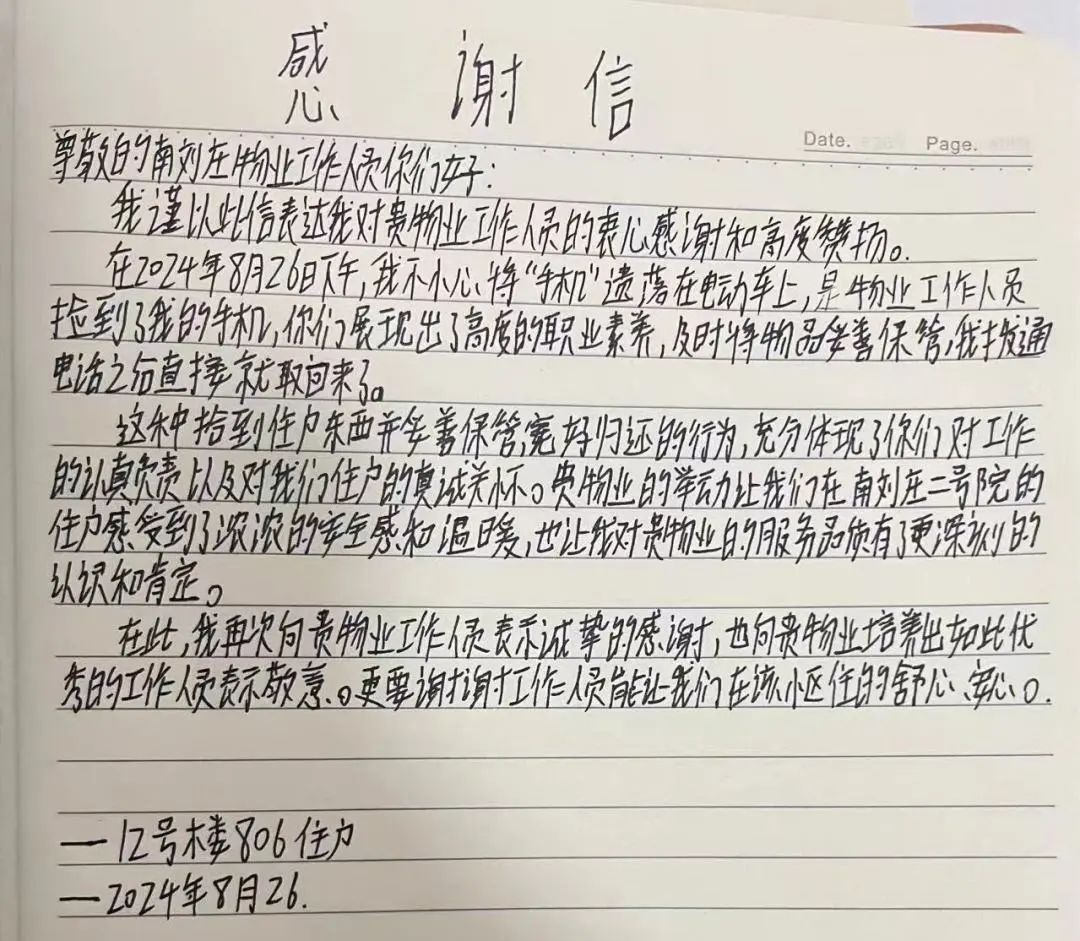 感谢信
Date. Page.
尊敬的南刘庄物业工作人员你们好:
我谨以此信表达我对贵物业工作人员的衷心感谢和高度赞扬。
在2024年8月26日下午,我不小心将“手机”遗落在电动车上,是物业工作人员
捡到了我的手机,你们展现出了高度的职业素养,及时将物品妥善保管,我拨通
电话之后直接就取回来了。
这种拾到住户东西并妥善保管,完好归还的行为,充分体现了你们对工作
的认真负责以及对我们住户的真诚关怀。贵物业的举动让我们在南刘庄二号院的
住户感受到了浓浓的安全感和温暖,也让我对贵物业的服务品质有了更深刻的
认识和肯定。
在此,我再次向贵物业工作人员表示诚挚的感谢,也向贵物业培养出如此优
秀的工作人员表示敬意。更要谢谢工作人员能让我们在该小区住的舒心、安心。
—12号楼806住户
—2024年8月26.